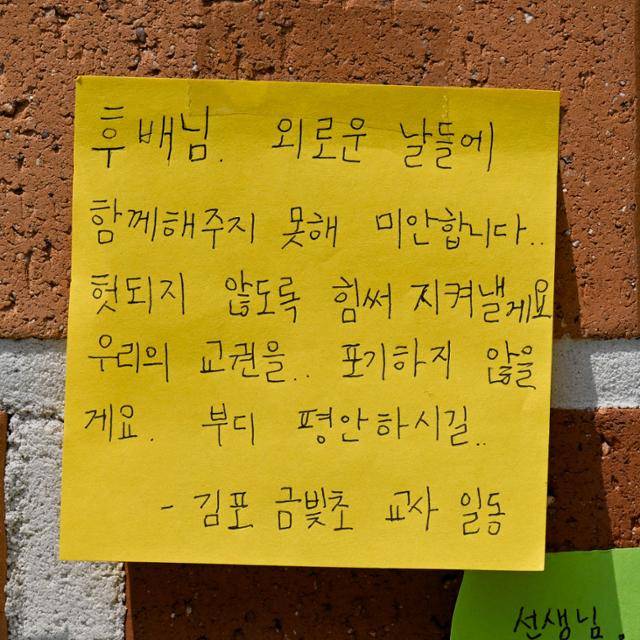 후배님. 외로운 날들에
함께해주지 못해 미안합니다..
헛되지 않도록 힘써 지켜낼게요
우리의 교권을.. 포기하지 않을
게요. 부디 평안하시길..
- 김포 금빛초 교사 일동
선생님